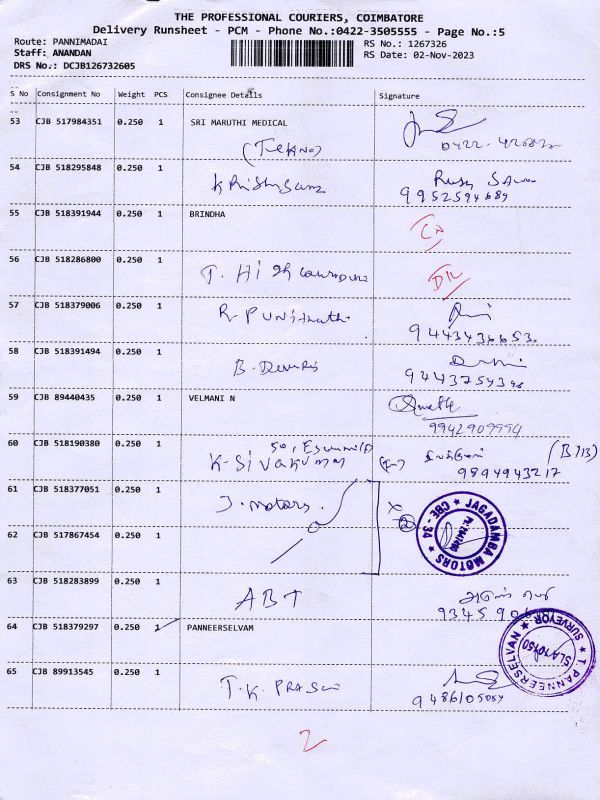 THE PROFESSIONAL COURIERS, COIMBATORE
Delivery Runsheet - PCM - Phone No.:0422-3505555 - Page No.:5
Route: PANNIMADAI
RS No.: 1267326
Staff: ANANDAN
RS Date: 02-Nov-2023
DRS No.: DCJB126732605
S No Consignment No Weight PCS Consignee Details Signature
53 CJB 517984351 0.250 1 SRI MARUTHI MEDICAL
54 CJB 518295848 0.250 1
9952594689
55 CJB 518391944 0.250 1 BRINDHA
56 CJB 518286800 0.250 1 T.
57 CJB 518379006 0.250 1 R. Punithathi
9443436653
58 CJB 518391494 0.250 1 B.
59 CJB 89440435 0.250 1 VELMANI N
9942909994
60 CJB 518190380 0.250 1 K. Sivakumar
9894943217
61 CJB 518377051 0.250 1 J. Motors.
JAGADAMBA MOTORS ★ CBE - 34 ★
62 CJB 517867454 0.250 1
63 CJB 518283899 0.250 1 ABT
64 CJB 518379297 0.250 1 PANNEERSELVAM
★ T. PANNEERSELVAN ★ SURVEYOR
65 CJB 89913545 0.250 1 T.K.
2